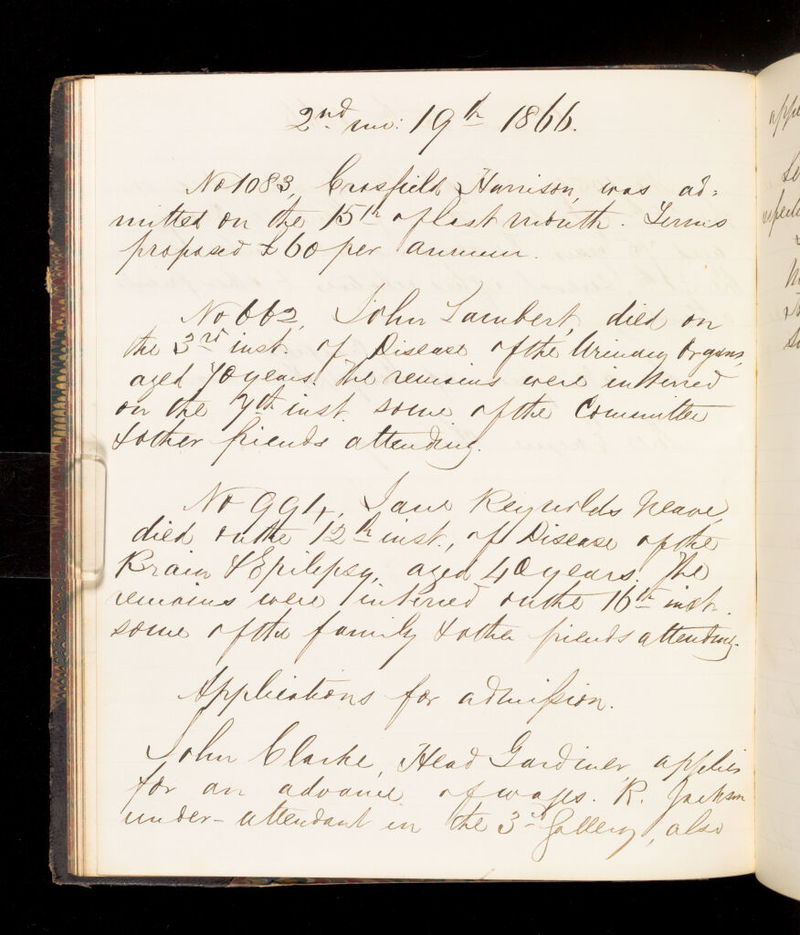 2nd mo: 19th 1866.
No 1083, Crosfield Harrison, was ad=
mitted on the 15th of last month. Terms
proposed £60 per annum.
No 662, John Lambert, died on
the 3rd inst. of Disease of the Urinary Organs,
aged 70 years. The remains were interred
on the 7th inst. some of the Committee
& other friends attending.
No 991, Jane Reynolds Neave,
died on the 12th inst., of Disease of the
Brain & Epilepsy, aged 40 years. The
remains were interred on the 16th inst.
some of the family & other friends attending.
Applications for admission.
John Clarke, Head Gardiner, applies
for an advance of wages. R. Jackson
under-attendant in the 3rd Gallery, also